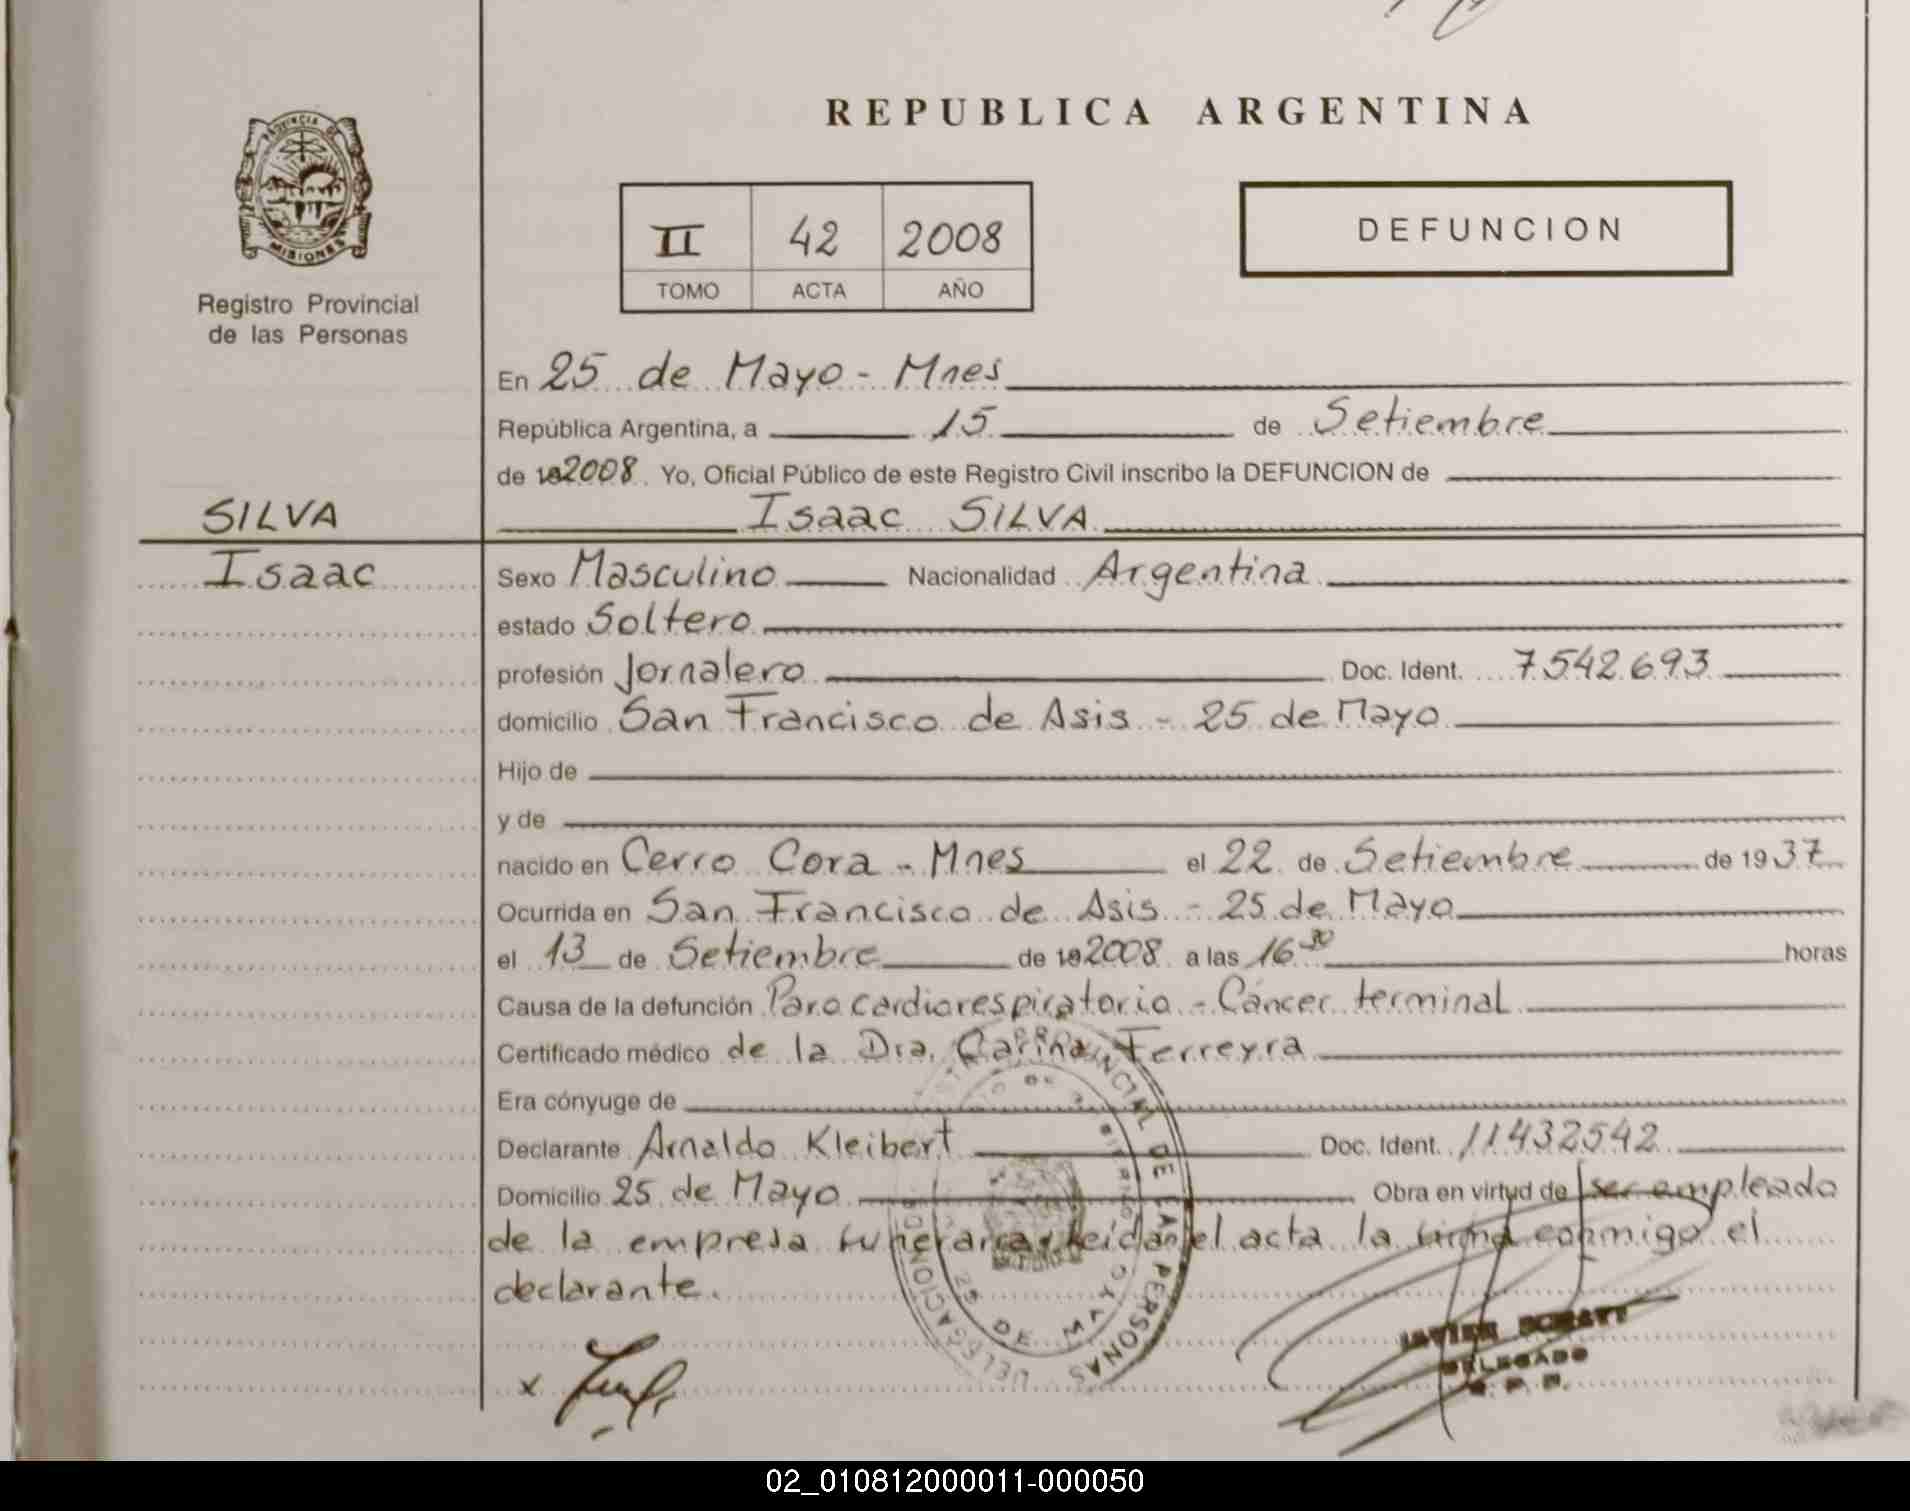 REPUBLICA ARGENTINA
PROVINCIA DE MISIONES
Registro Provincial
de las Personas
II 42 2008
TOMO ACTA AÑO
DEFUNCION
En 25 de Mayo - Mnes
República Argentina, a 15 de Setiembre
de 2008. Yo, Oficial Público de este Registro Civil inscribo la DEFUNCION de
SILVA
Isaac SILVA
Isaac
Sexo Masculino Nacionalidad Argentina
estado Soltero
profesión Jornalero Doc. Ident. 7.542.693
domicilio San Francisco de Asis - 25 de Mayo
Hijo de
y de
nacido en Cerro Cora - Mnes el 22 de Setiembre de 1937
Ocurrida en San Francisco de Asis - 25 de Mayo
el 13 de Setiembre de 2008 a las 16 30 horas
Causa de la defunción Paro cardiorespiratorio - Cáncer terminal
Certificado médico de la Dra. Carina Ferreyra
Era cónyuge de
Declarante Arnaldo Kleibert Doc. Ident. 11432542
Domicilio 25 de Mayo Obra en virtud de ser empleado
de la empresa funeraria, Leida el acta la firma conmigo el
declarante.
PROVINCIAL DE LAS PERSONAS
25 DE MAYO
x
JAVIER
DELEGADO
02_010812000011-000050